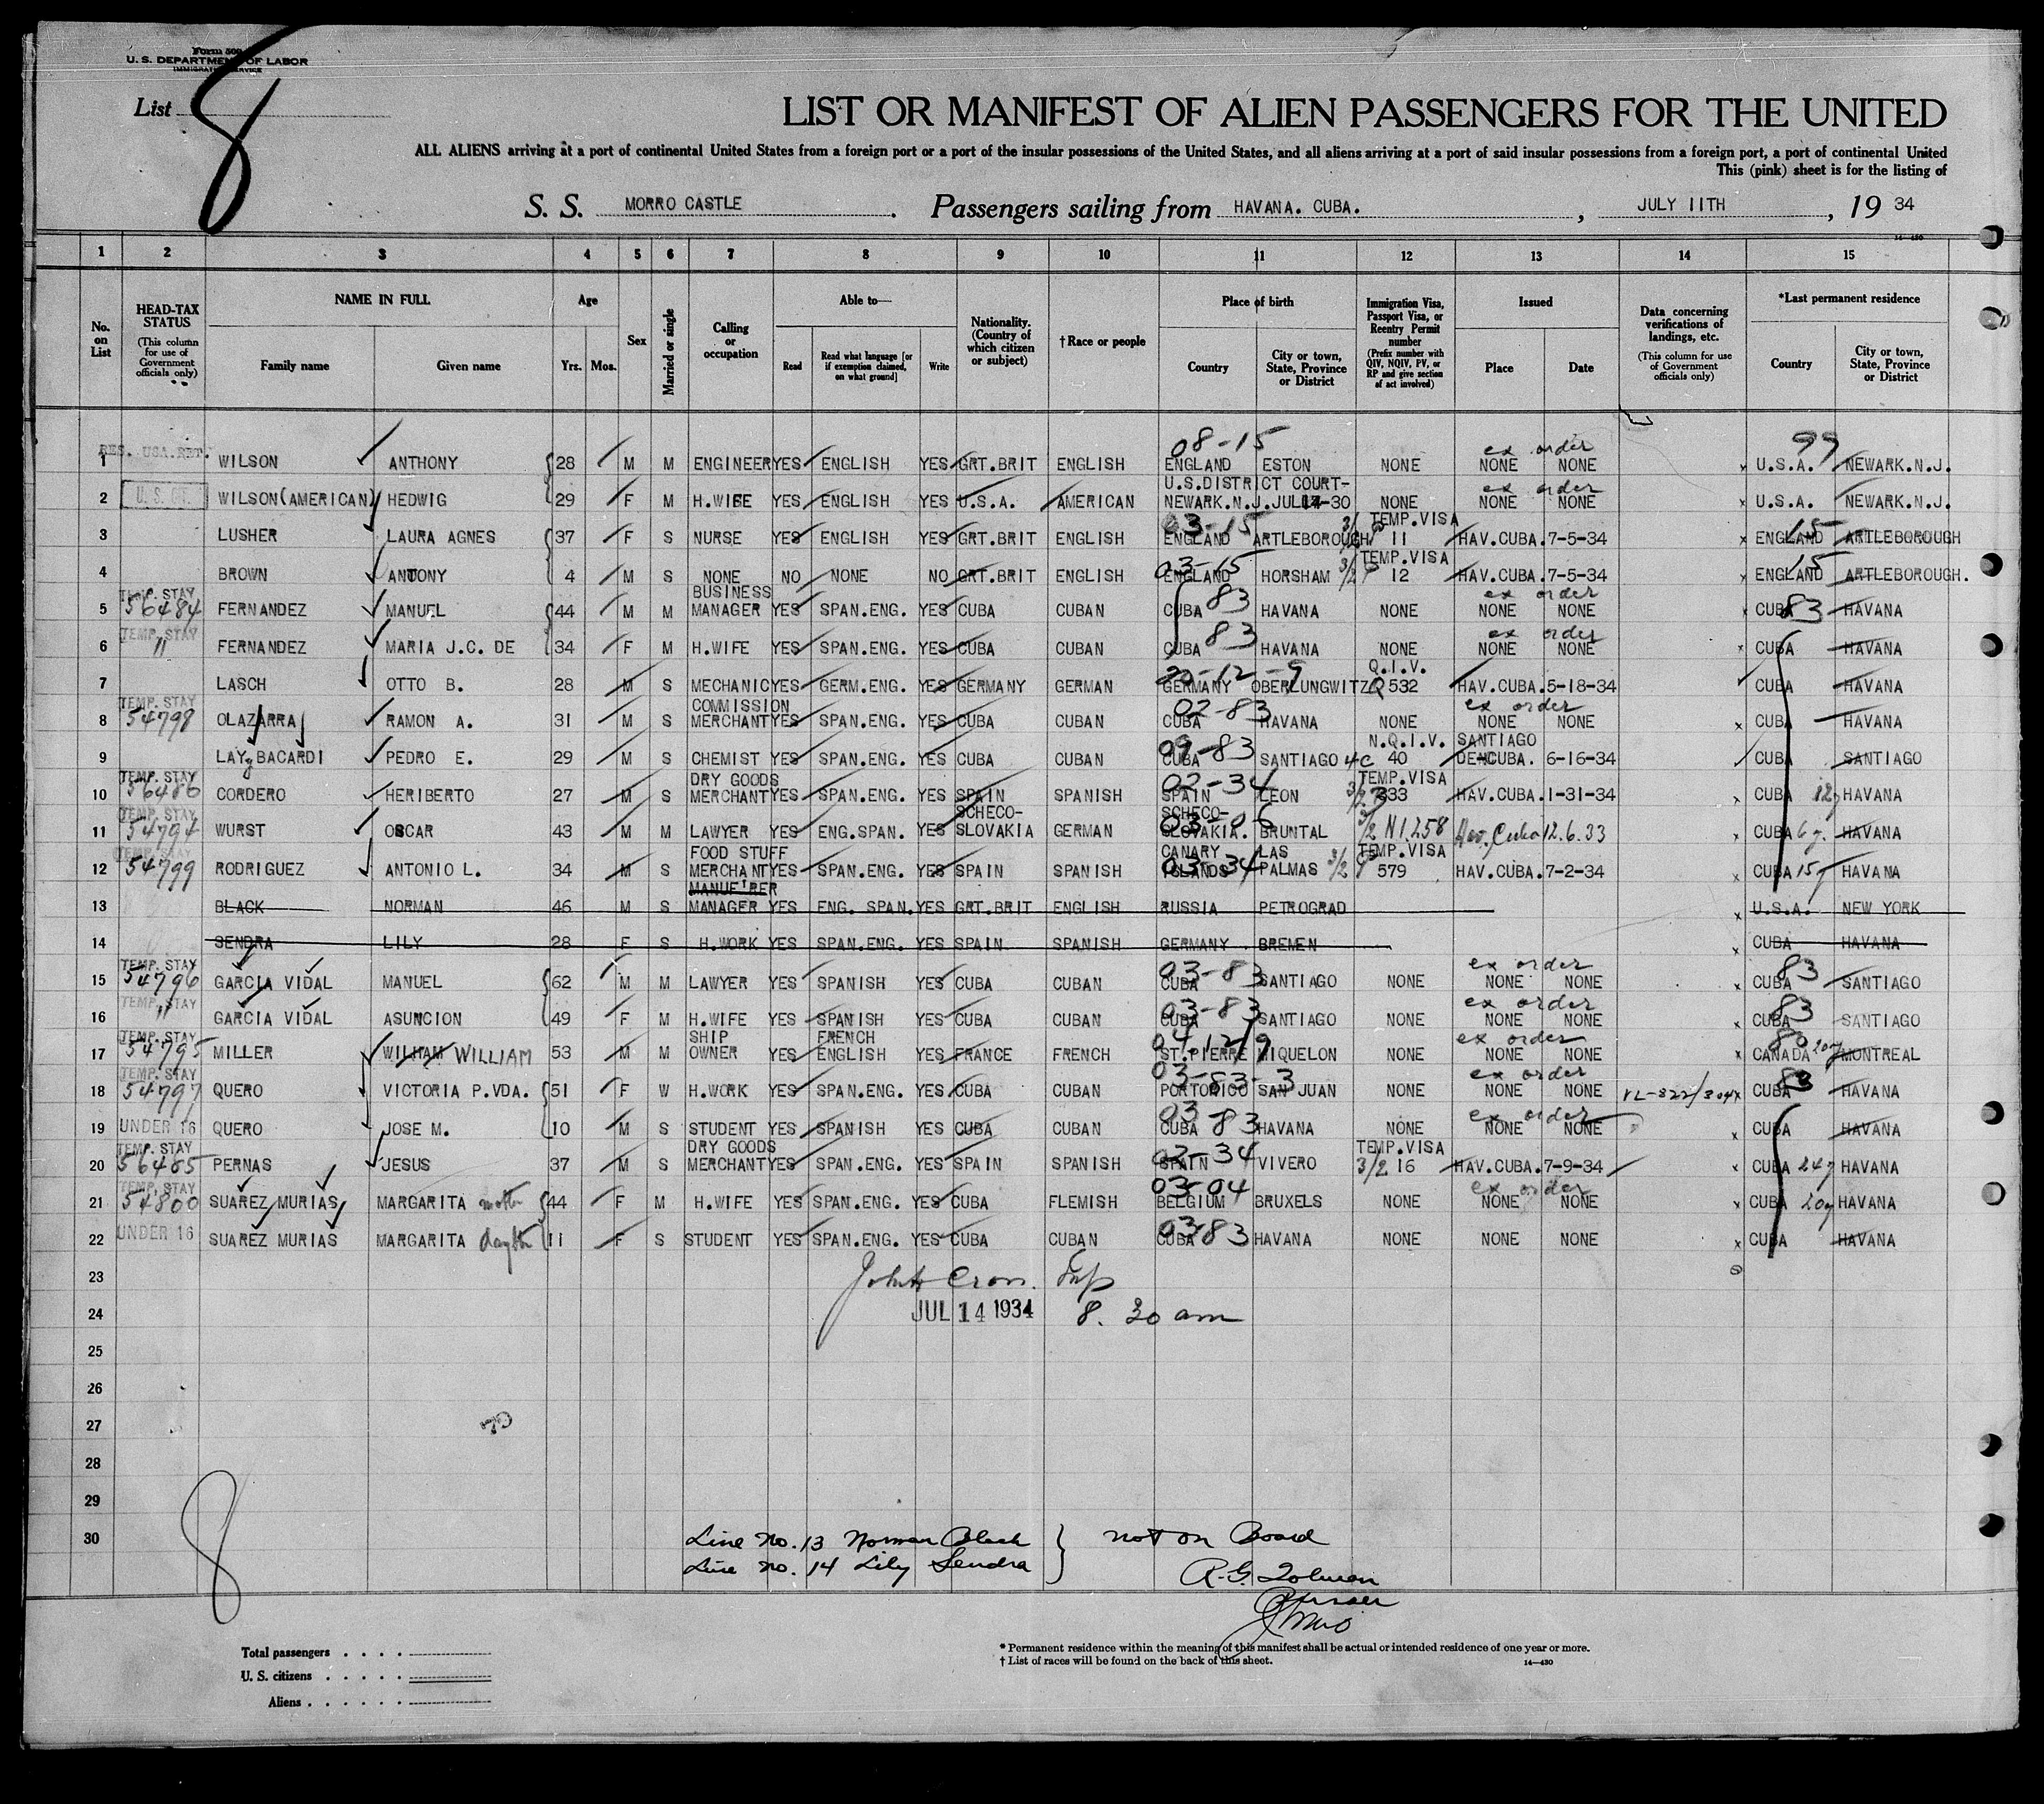 Form 500
U. S. DEPARTMENT OF LABOR
IMMIGRATION SERVICE
List 8
LIST OR MANIFEST OF ALIEN PASSENGERS FOR THE UNITED
ALL ALIENS arriving at a port of continental United States from a foreign port or a port of the insular possessions of the United States, and all aliens arriving at a port of said insular possessions from a foreign port, a port of continental United
This (pink) sheet is for the listing of
S. S. MORRO CASTLE. Passengers sailing from HAVANA. CUBA. , JULY 11TH , 19 34
14-430
1 2 3 4 5 6 7 8 9 10 11 12 13 14 15
No. on List
HEAD-TAX STATUS (This column for use of Government officials only)
NAME IN FULL Family name Given name
Age Yrs. Mos.
Sex
Married or single
Calling or occupation
Able to— Read Read what language [or if exemption claimed, on what ground] Write
Nationality. (Country of which citizen or subject)
†Race or people
Place of birth Country City or town, State, Province or District
Immigration Visa, Passport Visa, or Reentry Permit number (Prefix number with QIV, NQIV, PV, or RP and give section of act involved)
Issued Place Date
Data concerning verifications of landings, etc. (This column for use of Government officials only)
*Last permanent residence Country City or town, State, Province or District
08-15 ex order 99
1 RES. USA.RET. WILSON ANTHONY 28 M M ENGINEER YES ENGLISH YES GRT.BRIT ENGLISH ENGLAND ESTON NONE NONE NONE x U.S.A. NEWARK.N.J.
U.S.DISTRICT COURT- ex order
2 WILSON(AMERICAN) HEDWIG 29 F M H.WIFE YES ENGLISH YES U.S.A. AMERICAN NEWARK.N.J.JUL14-30 NONE NONE NONE x U.S.A. NEWARK.N.J.
03-15 TEMP.VISA 15
3 LUSHER LAURA AGNES 37 F S NURSE YES ENGLISH YES GRT.BRIT ENGLISH ENGLAND ARTLEBOROUGH 11 HAV.CUBA. 7-5-34 x ENGLAND ARTLEBOROUGH
03-15 TEMP.VISA 15
4 BROWN ANTONY 4 M S NONE NO NONE NO GRT.BRIT ENGLISH ENGLAND HORSHAM 12 HAV.CUBA. 7-5-34 x ENGLAND ARTLEBOROUGH.
TEMP. STAY BUSINESS 83 ex order
5 56484 FERNANDEZ MANUEL 44 M M MANAGER YES SPAN.ENG. YES CUBA CUBAN CUBA HAVANA NONE NONE NONE x CUBA 83 HAVANA
TEMP. STAY 83 ex order
6 " FERNANDEZ MARIA J.C. DE 34 F M H.WIFE YES SPAN.ENG. YES CUBA CUBAN CUBA HAVANA NONE NONE NONE x CUBA HAVANA
20-12-9 Q.I.V.
7 LASCH OTTO B. 28 M S MECHANIC YES GERM.ENG. YES GERMANY GERMAN GERMANY OBERLUNGWITZ Q 532 HAV.CUBA. 5-18-34 CUBA HAVANA
TEMP. STAY COMMISSION 02-83 ex order
8 54798 OLAZARRA RAMON A. 31 M S MERCHANT YES SPAN.ENG. YES CUBA CUBAN CUBA HAVANA NONE NONE NONE x CUBA HAVANA
09-83 N.Q.I.V. SANTIAGO
9 LAY y BACARDI PEDRO E. 29 M S CHEMIST YES SPAN.ENG. YES CUBA CUBAN CUBA SANTIAGO 4C 40 DE CUBA. 6-16-34 CUBA SANTIAGO
TEMP. STAY DRY GOODS 02-34 TEMP.VISA
10 56486 CORDERO HERIBERTO 27 M S MERCHANT YES SPAN.ENG. YES SPAIN SPANISH SPAIN LEON 3/2 333 HAV.CUBA. 1-31-34 x CUBA 12y HAVANA
TEMP. STAY SCHECO- SCHECO- 03-06
11 54794 WURST OSCAR 43 M M LAWYER YES ENG.SPAN. YES SLOVAKIA GERMAN SLOVAKIA. BRUNTAL 3/2 N1258 Hav. Cuba 12.6.33 x CUBA 6y. HAVANA
TEMP. STAY FOOD STUFF CANARY LAS TEMP.VISA
12 54799 RODRIGUEZ ANTONIO L. 34 M S MERCHANT YES SPAN.ENG. YES SPAIN SPANISH ISLANDS 03-34 PALMAS 3/2 579 HAV.CUBA. 7-2-34 x CUBA 15y HAVANA
MANUF'RER
13 BLACK NORMAN 46 M S MANAGER YES ENG. SPAN. YES GRT.BRIT ENGLISH RUSSIA PETROGRAD x U.S.A. NEW YORK
14 SENDRA LILY 28 F S H.WORK YES SPAN.ENG. YES SPAIN SPANISH GERMANY BREMEN x CUBA HAVANA
TEMP. STAY 03-83 ex order 83
15 54796 GARCIA VIDAL MANUEL 62 M M LAWYER YES SPANISH YES CUBA CUBAN CUBA SANTIAGO NONE NONE NONE x CUBA SANTIAGO
TEMP. STAY 03-83 ex order 83
16 " GARCIA VIDAL ASUNCION 49 F M H.WIFE YES SPANISH YES CUBA CUBAN CUBA SANTIAGO NONE NONE NONE x CUBA SANTIAGO
TEMP. STAY SHIP FRENCH 04-12/9 ex order 80
17 54795 MILLER WILHAM WILLIAM 53 M M OWNER YES ENGLISH YES FRANCE FRENCH ST.PIERRE MIQUELON NONE NONE NONE x CANADA 20y MONTREAL
TEMP. STAY 03-83-3 ex order 83
18 54797 QUERO VICTORIA P.VDA. 51 F W H.WORK YES SPAN.ENG. YES CUBA CUBAN PORTORICO SAN JUAN NONE NONE NONE x CUBA HAVANA
03-83 ex order
19 UNDER 16 QUERO JOSE M. 10 M S STUDENT YES SPANISH YES CUBA CUBAN CUBA HAVANA NONE NONE NONE x CUBA HAVANA
TEMP. STAY DRY GOODS 02-34 TEMP.VISA
20 56485 PERNAS JESUS 37 M S MERCHANT YES SPAN.ENG. YES SPAIN SPANISH SPAIN VIVERO 3/2 16 HAV.CUBA. 7-9-34 x CUBA 24y HAVANA
TEMP. STAY 03-04 ex order
21 54800 SUAREZ MURIAS MARGARITA mother 44 F M H.WIFE YES SPAN.ENG. YES CUBA FLEMISH BELGIUM BRUXELS NONE NONE NONE x CUBA 20y HAVANA
22 UNDER 16 SUAREZ MURIAS MARGARITA 11 F S STUDENT YES SPAN.ENG. YES CUBA CUBAN CUBA 03 83 HAVANA NONE NONE NONE x CUBA HAVANA
23 Cron. Insp
24 JUL 14 1934 8. 30 am
25
26
27
28
29
30 Line No. 13 Norman Black } not on Board
Line No. 14 Lily Sendra
R. G. Tolman
Purser
8
Total passengers
U. S. citizens
Aliens
* Permanent residence within the meaning of this manifest shall be actual or intended residence of one year or more.
† List of races will be found on the back of this sheet.
14-430